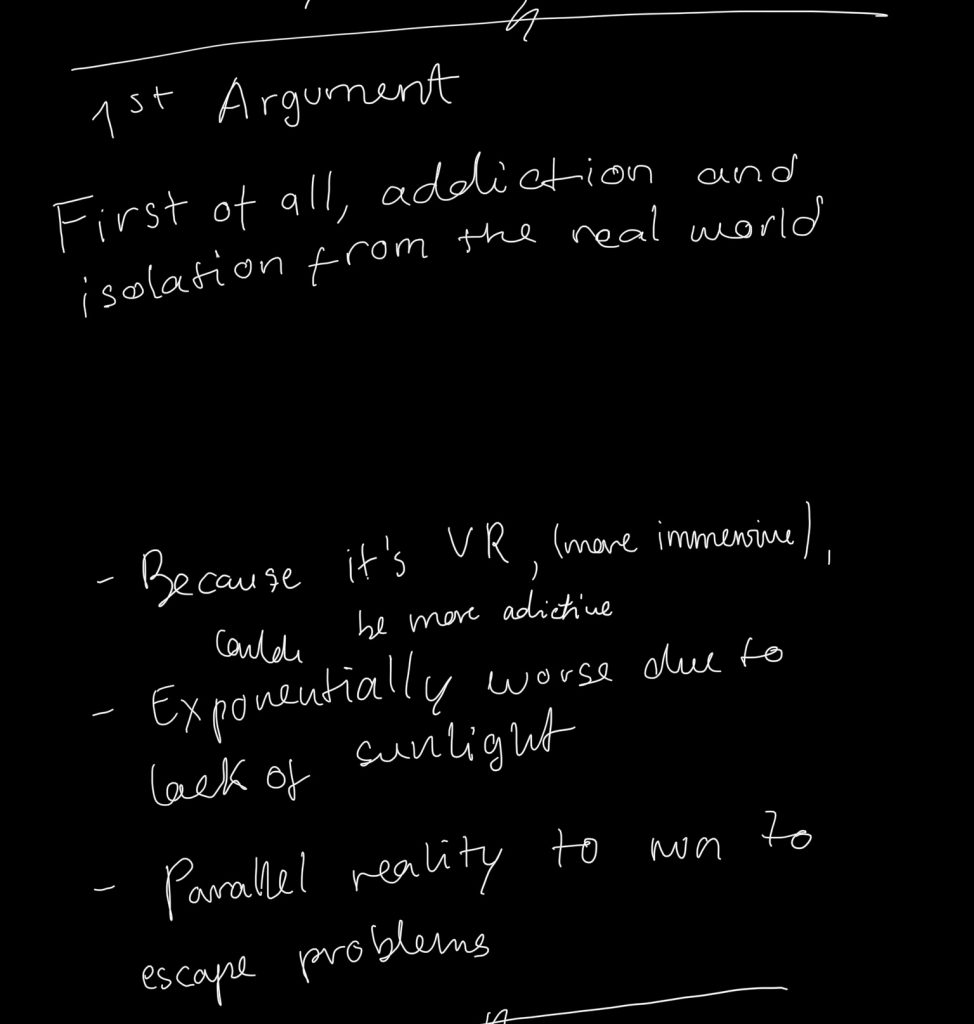 1st Argument
First of all, addiction and
isolation from the real world
- Because it's VR, (more immersive),
could be more adictive
- Exponentially worse due to
lack of sunlight
- Parallel reality to run to
escape problems